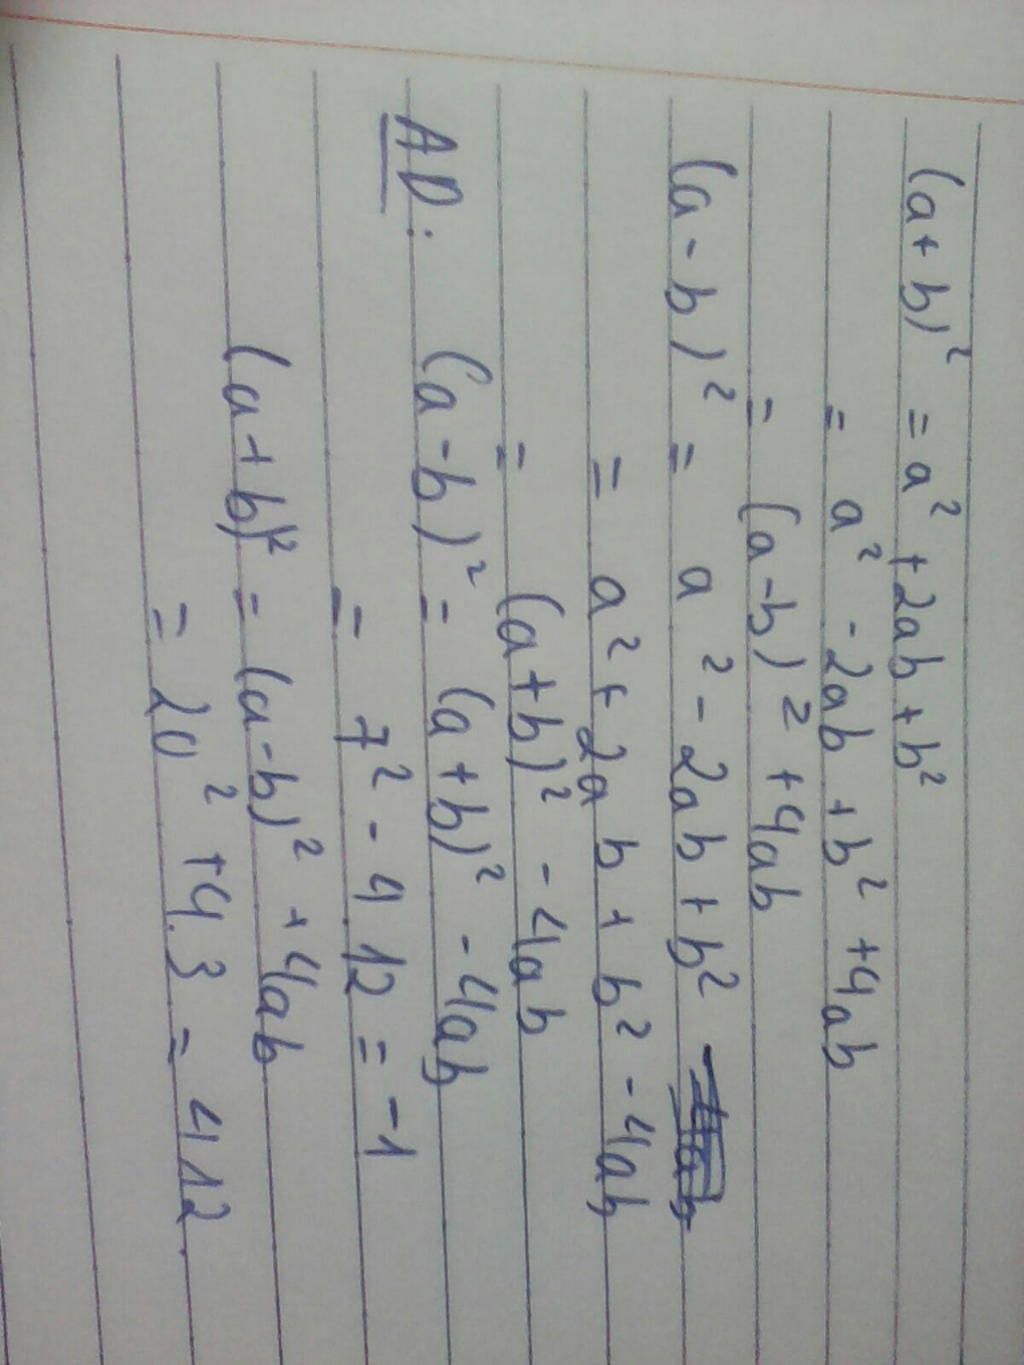 (a + b)² = a² + 2ab + b²
= a² - 2ab + b² + 4ab
= (a - b)² + 4ab
(a - b)² = a² - 2ab + b²
= a² + 2ab + b² - 4ab
= (a + b)² - 4ab
AD: (a - b)² = (a + b)² - 4ab
= 7² - 4 12 = -1
(a + b)² = (a - b)² + 4ab
= 20² + 4.3 = 412.